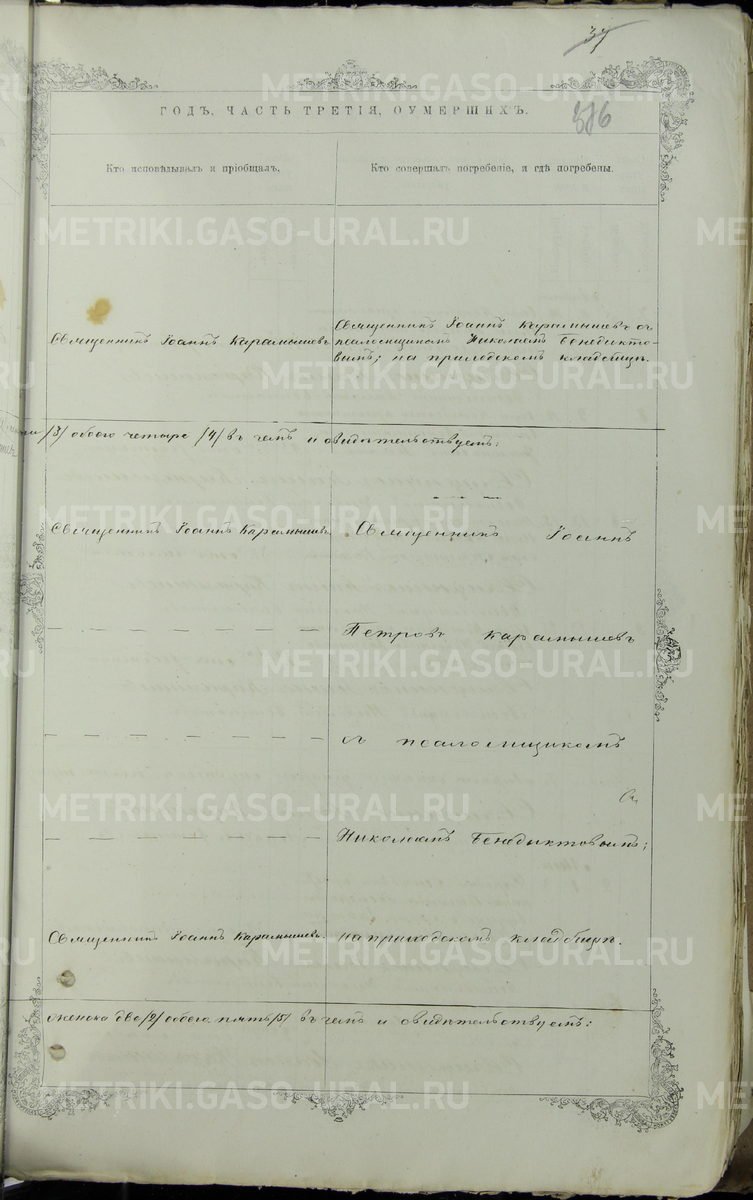 37
ГОДЪ, ЧАСТЬ ТРЕТІЯ, ОУМЕРШИХЪ.
Кто исповѣдывалъ и пріобщалъ.
Кто совершалъ погребеніе, и гдѣ погребены.
Священникъ Іоаннъ Карамышевъ
Священникъ Іоаннъ Карамышевъ съ
псаломщикомъ Николаемъ Бенедикто-
вымъ; на приходскомъ кладбищѣ.
/3/ обоего четыре /4/ въ чемъ и свидѣтельствуемъ:
Священникъ Іоаннъ Карамышевъ.
Священникъ Іоаннъ
Петровъ Карамышевъ
съ псаломщикомъ
Николаемъ Бенедиктовымъ;
Священникъ Іоаннъ Карамышевъ.
на приходскомъ кладбищѣ.
женска два /2/ обоего пять /5/ въ чемъ и свидѣтельствуемъ:
METRIKI.GASO-URAL.RU